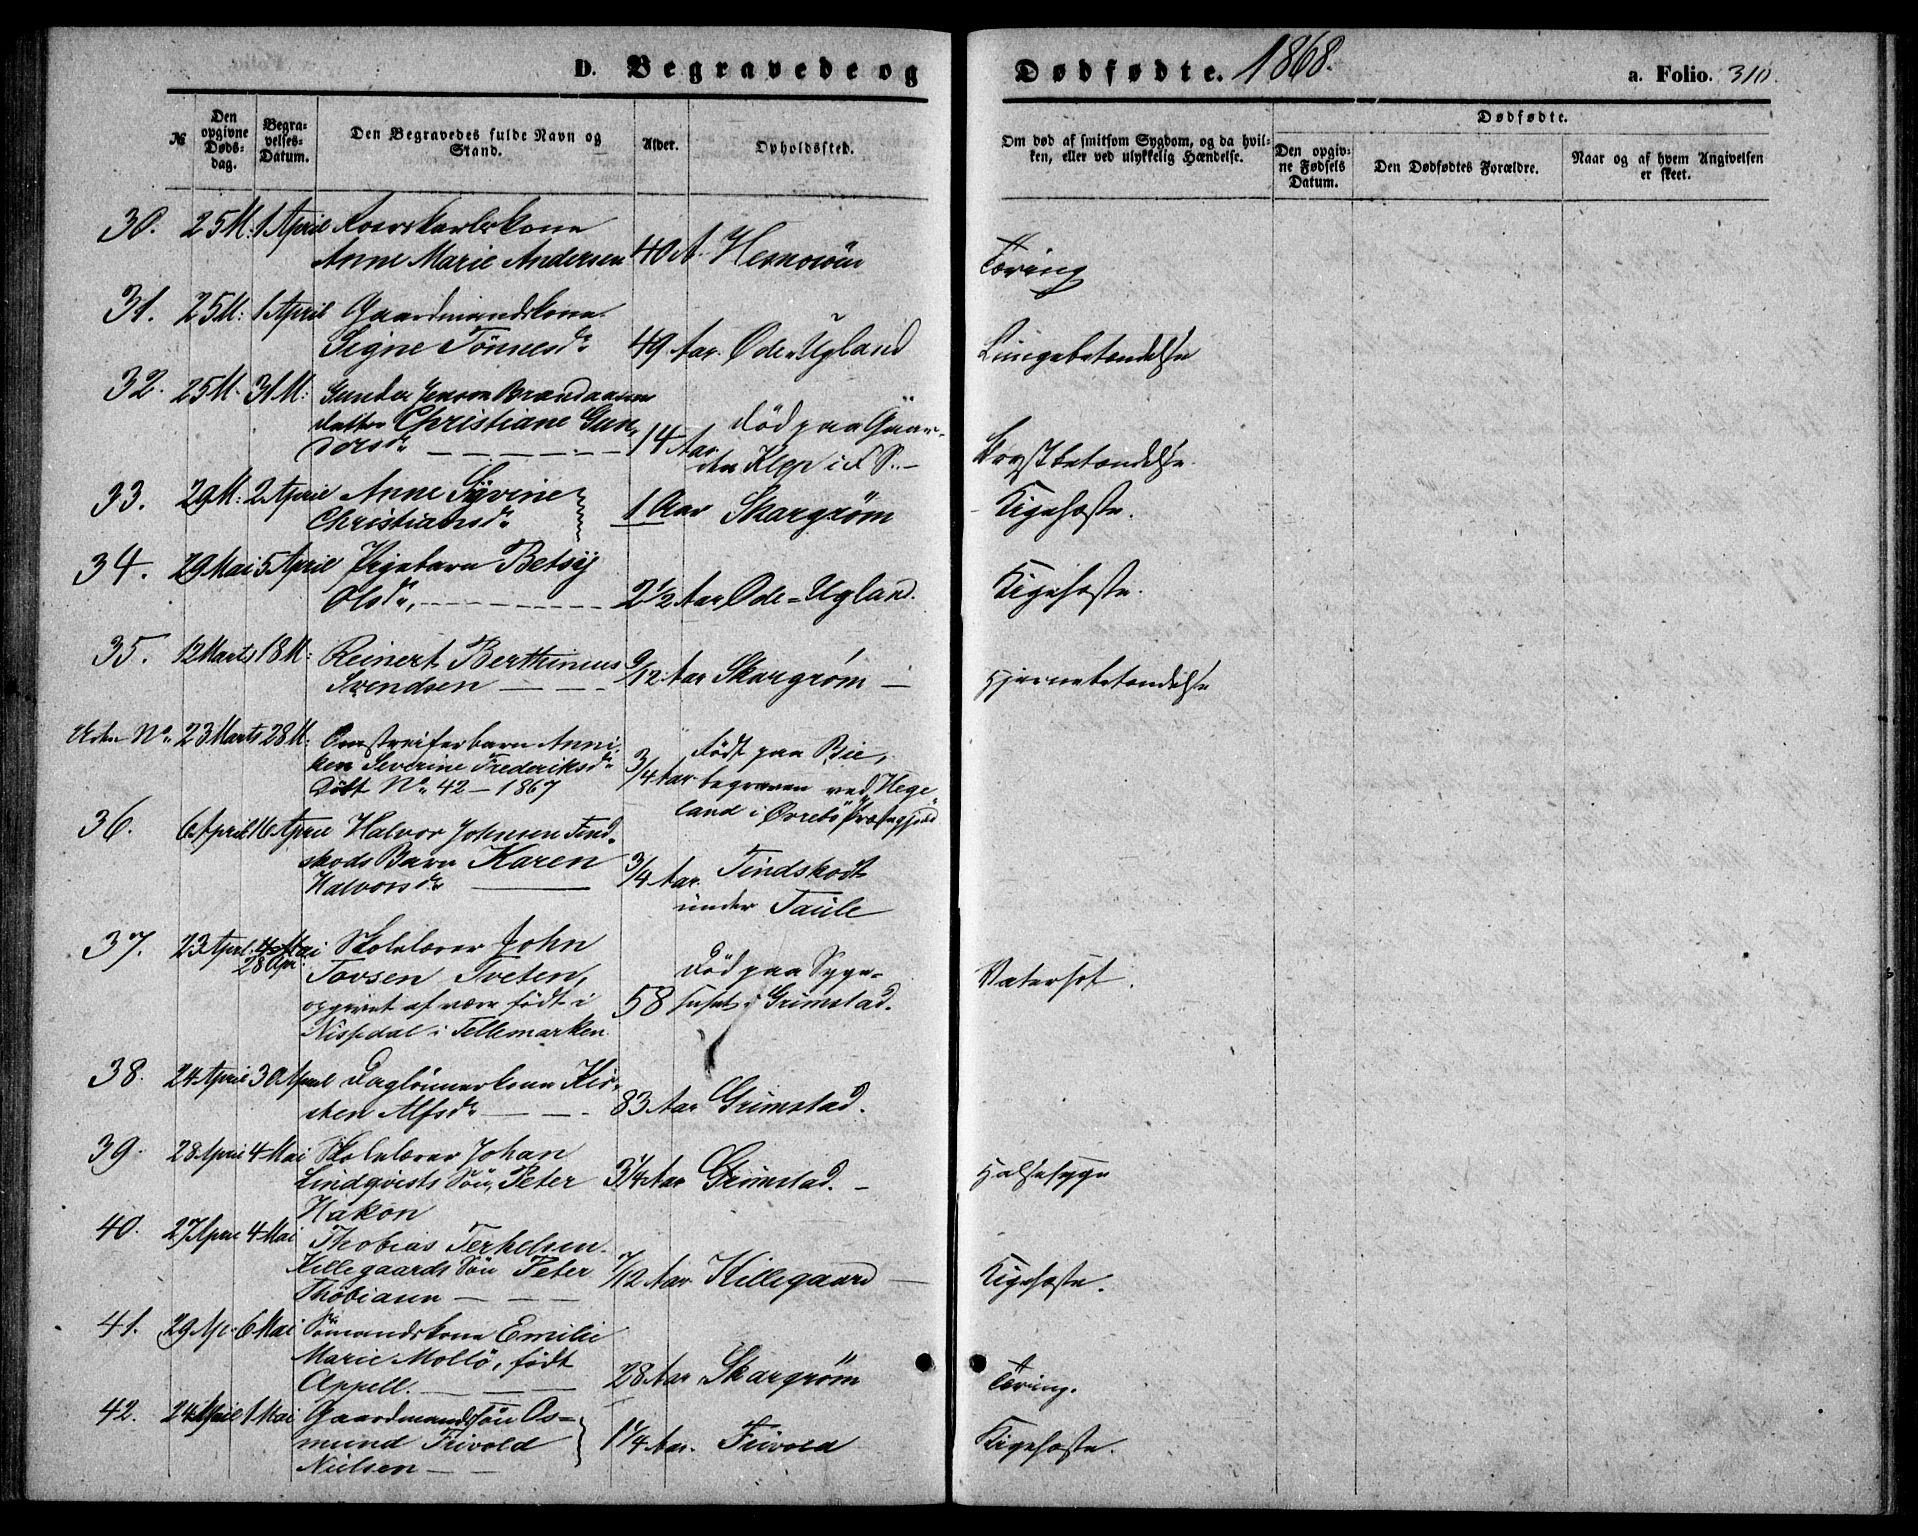 D. Begravede og Dødfødte. 1868. a. Folio. 310.
№
Den opgivne Døds-dag.
Begra-velses-Datum.
Den Begravedes fulde Navn og Stand.
Alder.
Opholdssted.
Om død af smitsom Sygdom, og da hvil-ken, eller ved ulykkelig Hændelse.
Dødfødte.
Den opgiv-ne Fødsels Datum.
Den Dødfødtes Forældre.
Naar og af hvem Angivelsen er skeet.
30. 25 M: 1 April
Anne Marie Andersen 40 A. Tæring
31. 25 M: 1 April Gaardmandskone
Signe Tönnesdr 49 Aar. Øde-Ugland Lungebetændelse
32. 25 M. 31 M: Gunder Jenson Brandaasens
datter Christiane Gun-
dersdr 14 Aar Död paa Gaar-
den Klep i F. S. Brystbetændelse.
33. 29 M: 2 April Anne Syvine
Christiansdr 1 Aar Skargrøm Kigehoste.
34. 29 Mai 5 April Pigebarn Betsy
Olsdr, 2 1/2 Aar Øde-Ugland. Kigehoste.
35. 12 Marts 18 M: Reinert Berthinius
Svendsen 9/12 Aar Skargrøm Hjernebetændelse
Uden No. 23 Marts 28 M: Omstreiferbarn Anni-
ken Severine Frederiksdr
Döbt No. 42 - 1867 3/4 Aar Födt paa Bie,
begraven ved Hege-
land i Øvrebö Præstegjeld
36. 6 April 16 April Halvor Johnsen Tind-
skods Barn Karen
Halvorsdr 3/4 Aar. Tindskodt
under Taule
37. 23 April 4 Mai 28 Apr: Skolelærer John
Tovsen Tveten,
opgivet at være födt i
Nissedal i Tellemarken. 58 Död paa Syge-
huset i Grimstad. Vatersot.
38. 24 April 30 April Daglönnerkone Kir-
sten Alfsdr 83 Aar Grimstad.
39. 28 April 4 Mai Skolelærer Johan
Lindqvists Sön, Peter
Hakon 3 1/4 Aar Grimstad. Halssyge
40. 27 April 4 Mai Thobias Terkelsen
Killegaards Sön Peter
Thobiasen 7/12 Aar Killegaard Kigehoste.
41. 29 Ap. 6 Mai Sömandskone Emilie
Marie Mollö, födt
Appell. 28 Aar Skargrøm Tæring.
42. 24 April 1 Mai Gaardmandssön Os-
mund Frivold
Nielsen 1 1/4 Aar. Frivold Kigehoste.